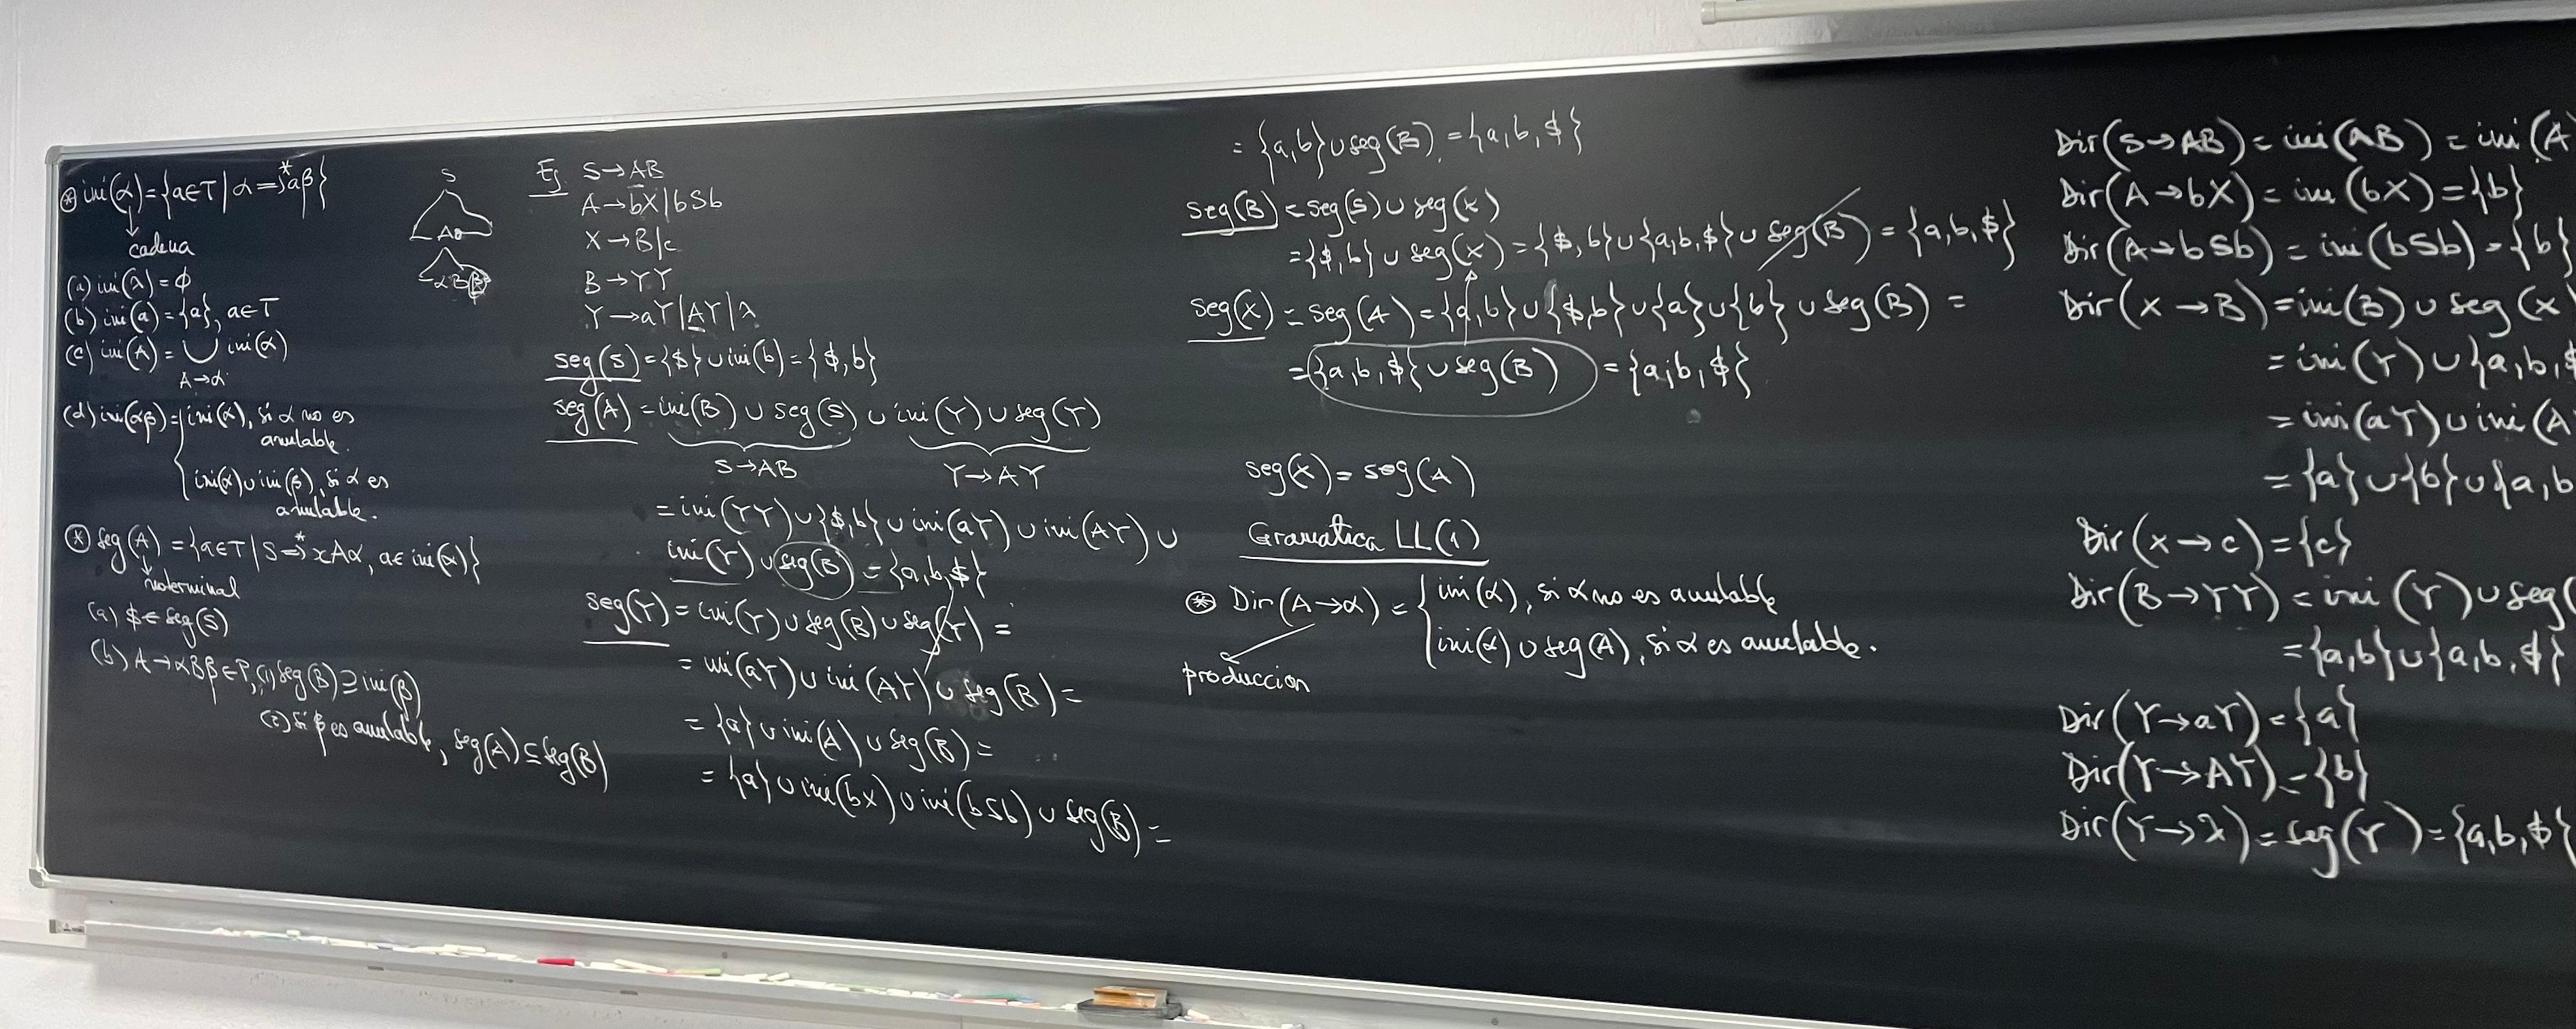 ⊛ ini(α)={a∈T | α⇒*aβ}
cadena
(a) ini(λ)=ϕ
(b) ini(a)={a}, a∈T
(c) ini(A)= ∪ ini(α)
A→α
(d) ini(αβ)={ini(α), si α no es
anulable.
ini(α)∪ini(β), si α es
anulable.
⊛ seg(A)={a∈T | S⇒*xAα, a∈ini(α)}
noterminal
(a) $∈seg(S)
(b) A→αBβ∈P, (1) seg(B)⊇ini(β)
(2) Si β es anulable, seg(A)⊆seg(B)
S
Ej S→AB
A→bX|bSb
X→B|c
B→YY
Y→aY|AY|λ
seg(S)={$}∪ini(b)={$,b}
seg(A)=ini(B)∪seg(S)∪ini(Y)∪seg(Y)
S→AB Y→AY
=ini(YY)∪{$,b}∪ini(aY)∪ini(AY)∪
ini(Y)∪seg(B)={a,b,$}
seg(Y)=ini(Y)∪seg(B)∪seg(Y)=
=ini(aY)∪ini(AY)∪seg(B)=
={a}∪ini(A)∪seg(B)=
={a}∪ini(bX)∪ini(bSb)∪seg(B)=
={a,b}∪seg(B)={a,b,$}
seg(B)=seg(S)∪seg(X)
={$,b}∪seg(X)={$,b}∪{a,b,$}∪seg(B)={a,b,$}
seg(X)=seg(A)={a,b}∪{$,b}∪{a}∪{b}∪seg(B)=
={a,b,$}∪seg(B)={a,b,$}
seg(X)=seg(A)
Gramatica LL(1)
⊛ Dir(A→α)={ini(α), si α no es anulable
ini(α)∪seg(A), si α es anulable.
produccion
Dir(S→AB)=ini(AB)=ini(A
Dir(A→bX)=ini(bX)={b}
Dir(A→bSb)=ini(bSb)={b}
Dir(X→B)=ini(B)∪seg(X
=ini(Y)∪{a,b,$
=ini(aY)∪ini(A
={a}∪{b}∪{a,b
Dir(X→c)={c}
Dir(B→YY)=ini(Y)∪seg(
={a,b}∪{a,b,$}
Dir(Y→aY)={a}
Dir(Y→AY)={b}
Dir(Y→λ)=seg(Y)={a,b,$}